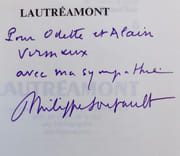 LAUTRÉAMONT
Pour Odette et Alain
Virmaux
avec ma sympathie
Philippe Soupault